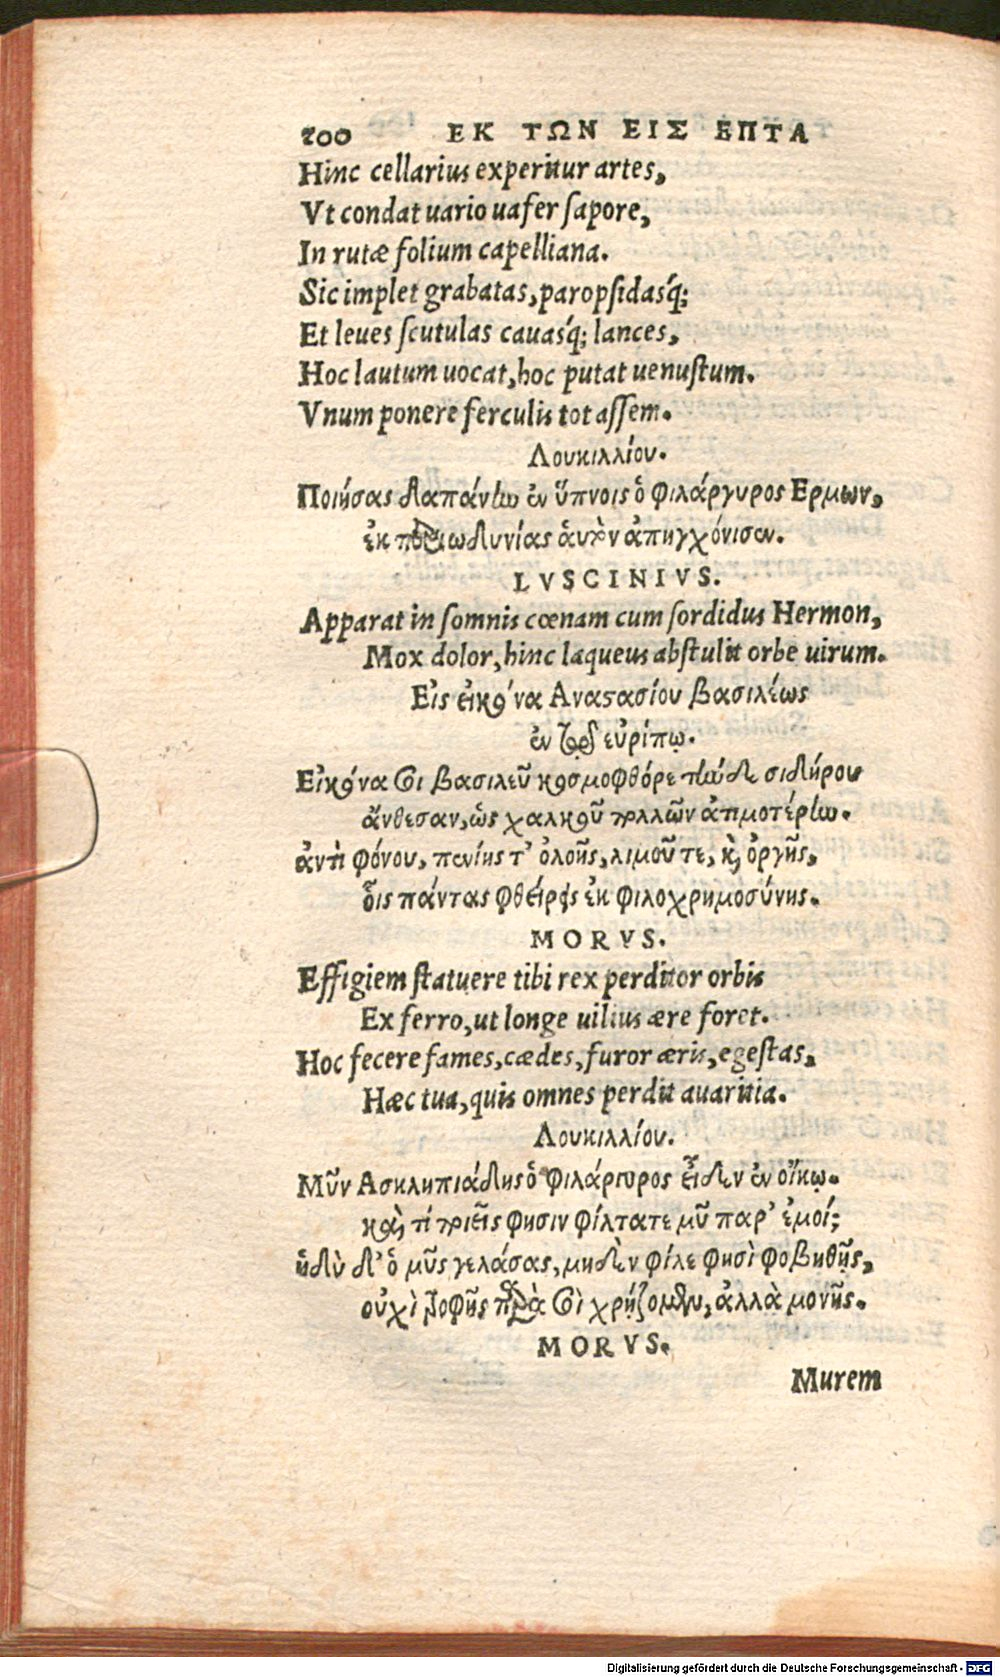 200 ΕΚ ΤΩΝ ΕΙΣ ΕΠΤΑ
Hinc cellarius experitur artes,
Vt condat uario uafer sapore,
In rutæ folium capelliana.
Sic implet grabatas, paropsidasq́;
Et leues scutulas cauasq́; lances,
Hoc lautum uocat, hoc putat uenustum.
Vnum ponere ferculis tot assem.
Λουκιλλίου.
Ποιήσας δαπάνην ἐν ὕπνοις ὁ φιλάργυρος Ερμων,
ἐκ περιωδυνίας αὑτὸν ἀπηγχόνισεν.
LVSCINIVS.
Apparat in somnis cœnam cum sordidus Hermon,
Mox dolor, hinc laqueus abstulit orbe uirum.
Εἰς εἰκόνα Αναστασίου βασιλέως
ἐν τῷ εὐρίπῳ.
Εἰκόνα σοι βασιλεῦ κοσμοφθόρε τήνδε σιδήρου
ἄνθεσαν, ὡς χαλκοῦ πολλῶν ἀτιμοτέρην.
ἀντὶ φόνου, πενίης τ’ ὀλοῆς, λιμοῦ τε, καὶ ὀργῆς,
οἷς πάντας φθείρεις ἐκ φιλοχρημοσύνης.
MORVS.
Effigiem statuere tibi rex perditor orbis
Ex ferro, ut longe uilius ære foret.
Hoc fecere fames, cædes, furor æris, egestas,
Hæc tua, quis omnes perdit auaritia.
Λουκιλλίου.
Μῦν Ασκληπιάδης ὁ φιλάργυρος εἶδεν ἐν οἴκῳ.
καὶ τί ποιεῖς φησιν φίλτατε μῦ παρ’ ἐμοί;
ἡδὺ δ’ ὁ μῦς γελάσας, μηδὲν φίλε φησὶ φοβηθῇς,
οὐχὶ τροφῆς παρὰ σοὶ χρῄζομεν, ἀλλὰ μονῆς.
MORVS.
Murem
Digitalisierung gefördert durch die Deutsche Forschungsgemeinschaft - DFG